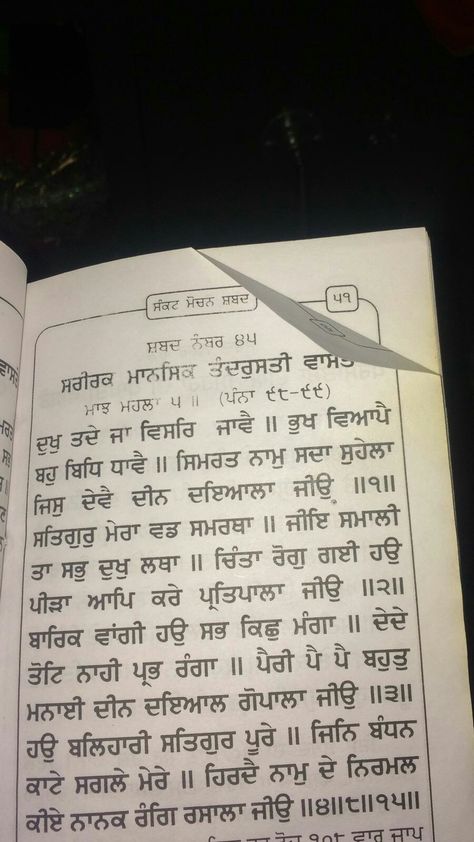 ਸੰਕਟ ਮੋਚਨ ਸ਼ਬਦ
੫੧
ਸ਼ਬਦ ਨੰਬਰ ੪੫
ਸਰੀਰਕ ਮਾਨਸਿਕ ਤੰਦਰੁਸਤੀ ਵਾਸਤੇ
ਮਾਝ ਮਹਲਾ ੫ ॥ (ਪੰਨਾ ੯੮-੯੯)
ਦੁਖੁ ਤਦੇ ਜਾ ਵਿਸਰਿ ਜਾਵੈ ॥ ਭੁਖ ਵਿਆਪੈ
ਬਹੁ ਬਿਧਿ ਧਾਵੈ ॥ ਸਿਮਰਤ ਨਾਮੁ ਸਦਾ ਸੁਹੇਲਾ
ਜਿਸੁ ਦੇਵੈ ਦੀਨ ਦਇਆਲਾ ਜੀਉ ॥੧॥
ਸਤਿਗੁਰੁ ਮੇਰਾ ਵਡ ਸਮਰਥਾ ॥ ਜੀਇ ਸਮਾਲੀ
ਤਾ ਸਭੁ ਦੁਖੁ ਲਥਾ ॥ ਚਿੰਤਾ ਰੋਗੁ ਗਈ ਹਉ
ਪੀੜਾ ਆਪਿ ਕਰੇ ਪ੍ਰਤਿਪਾਲਾ ਜੀਉ ॥੨॥
ਬਾਰਿਕ ਵਾਂਗੀ ਹਉ ਸਭ ਕਿਛੁ ਮੰਗਾ ॥ ਦੇਦੇ
ਤੋਟਿ ਨਾਹੀ ਪ੍ਰਭ ਰੰਗਾ ॥ ਪੈਰੀ ਪੈ ਪੈ ਬਹੁਤੁ
ਮਨਾਈ ਦੀਨ ਦਇਆਲ ਗੋਪਾਲਾ ਜੀਉ ॥੩॥
ਹਉ ਬਲਿਹਾਰੀ ਸਤਿਗੁਰ ਪੂਰੇ ॥ ਜਿਨਿ ਬੰਧਨ
ਕਾਟੇ ਸਗਲੇ ਮੇਰੇ ॥ ਹਿਰਦੈ ਨਾਮੁ ਦੇ ਨਿਰਮਲ
ਕੀਏ ਨਾਨਕ ਰੰਗਿ ਰਸਾਲਾ ਜੀਉ ॥੪॥੮॥੧੫॥
੧੦੮ ਵਾਰ ਜਾਪ